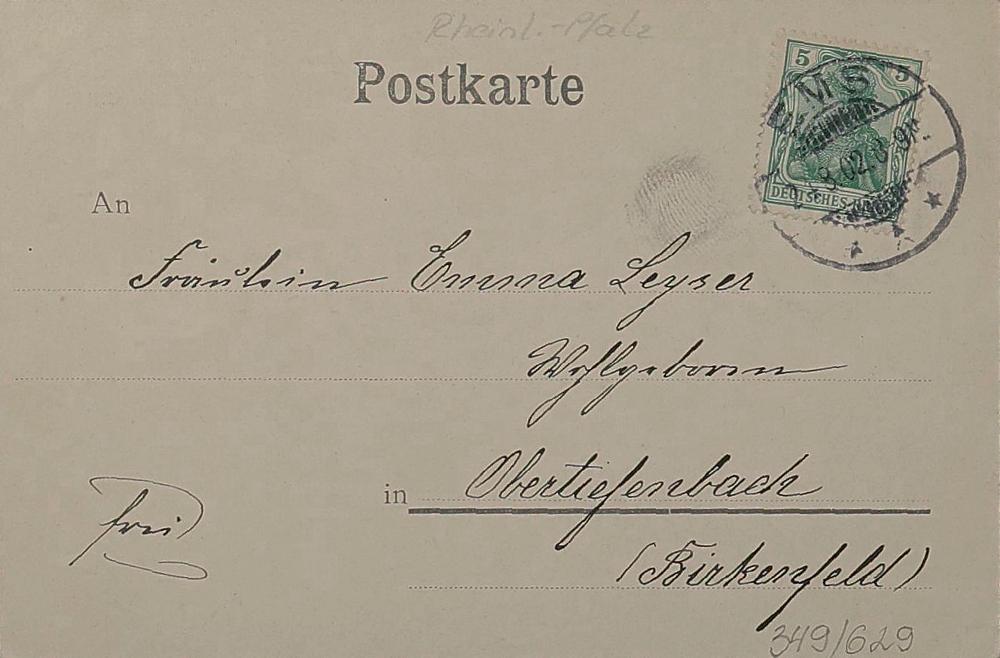 Rheinl.-Pfalz
Postkarte
5 5
EMS
3.02. 8-9N.
DEUTSCHES REICH
An
Fräulein Emma Leyser
Wohlgeboren
in Obertiefenbach
frei
(Birkenfeld)
349/629